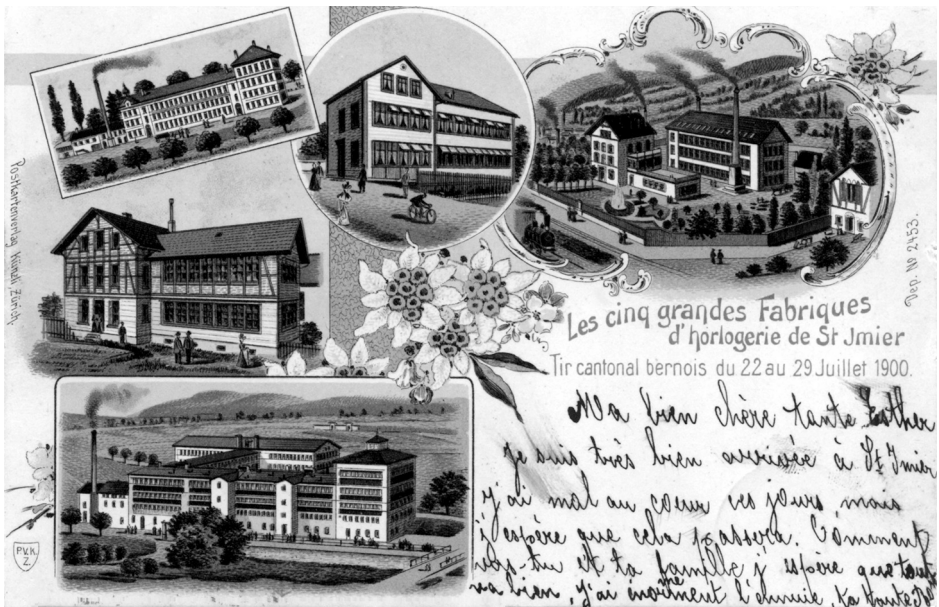 Postkartenverlag Künzli, Zürich.
Dep. No 2453.
Les cinq grandes Fabriques
d'horlogerie de St Jmier
Tir cantonal bernois du 22 au 29 Juillet 1900.
Ma bien chère tante Esther
je suis très bien arrivée à St Imier
j'ai mal au coeur ces jours, mais
j'espère que cela passera. Comment
vas-tu et ta famille j'espère que tout
va bien, j'ai l'ennuie, ta
P.V.K.
Z.